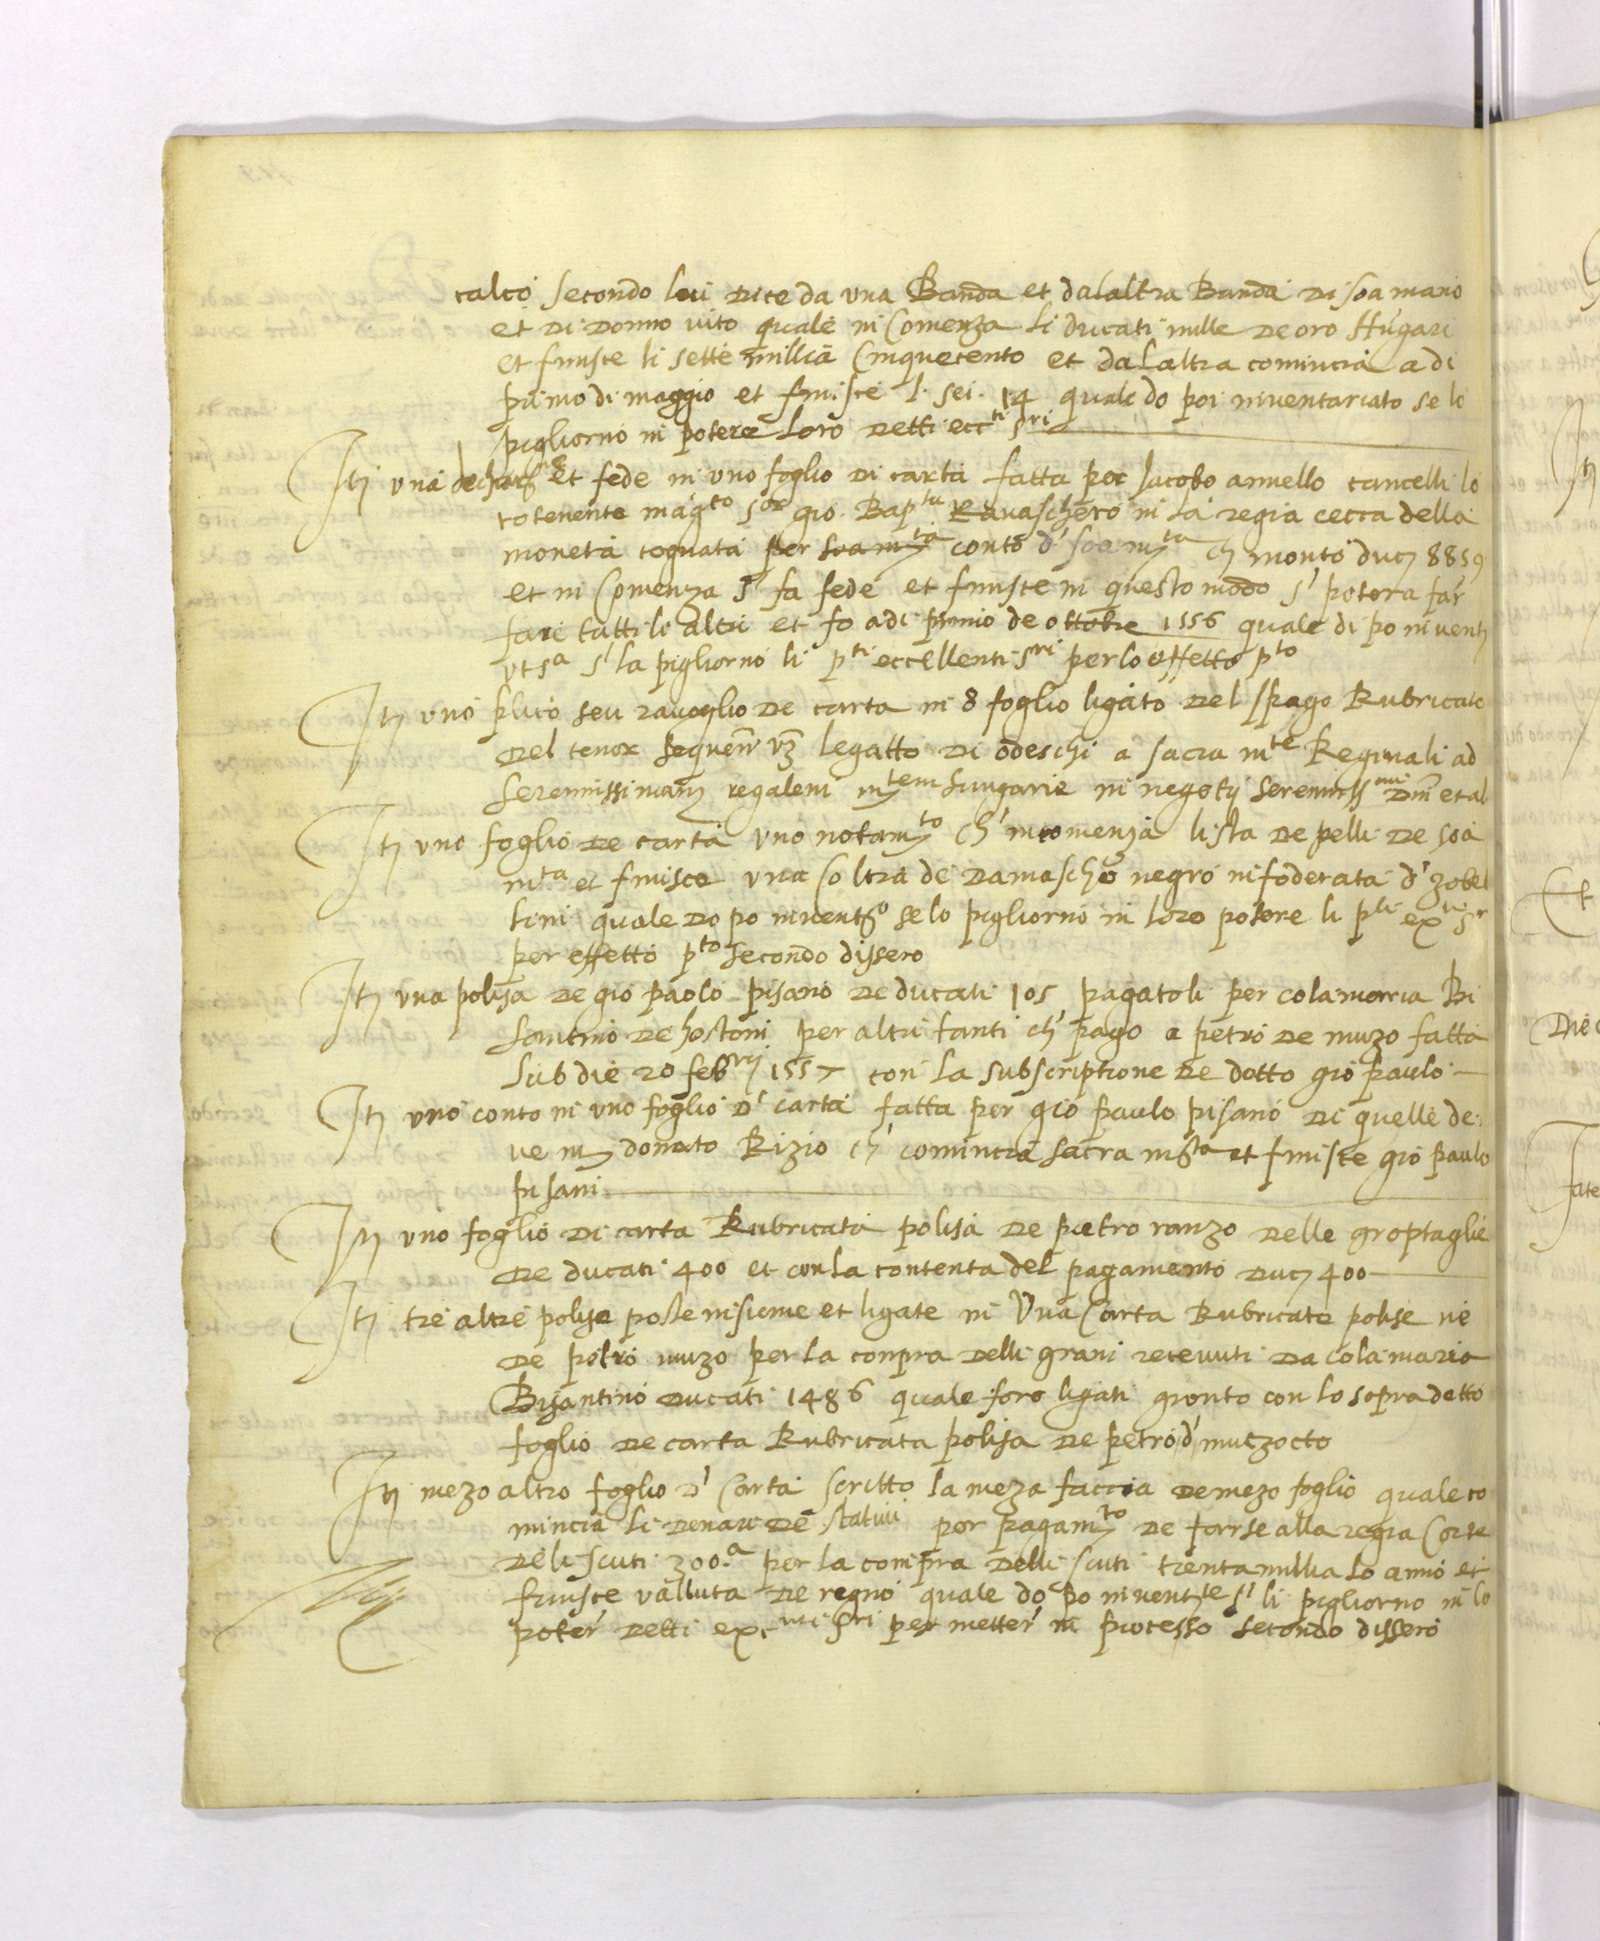 calco secondo lui dice da una Banda et dalaltra Banda di soa mano
et di donno vito quale incomenza li ducati mille de oro Hũgari
et finisce li sette millia Cinquecento et dalaltra comincia a di
primo di maggio et finisce l. sei. 14 quale do poi inventariato se lo
pigliorno in potere loro detti ecc.ti s.ri
Itē una et fede in uno foglio di carta fatta per Jacobo annello cancelli lo
cotenente mag.co s.or gio. Bap.ta Ravaschero in la regia cecca della
moneta cognata per soa m.ta conto d' soa m.ta ch' monto duc. 8859
et incomenza s' fa fede et finisce in questo modo s' potera far
fare tutti li altri et fo a di primo de ottobre 1556 quale di po invent.
ut s.a s' la pigliorno li p.ti eccellenti s.ri per lo effetto p.to
Itē uno plico seu ravoglio de carta in 8 foglio ligato del spago Rubricato
del tenor sequen. vz legatto di odeschi a sacra m.te Reginali ad
serenissimam regalem m.tem hungarie in negotij sereniss.mi Dni et al
Itē uno foglio de carta uno notam.to ch' incomenza lista de pelli de soa
m.ta et finisce una coltra de damascho negro infoderata d' zobel
lini quale dopo invent.o se lo pigliorno in loro potere li p.ti ex.ti s.r
per effetto p.to secondo dissero
Itē una polisa de gio paolo pisano de ducati 105 pagatoli per colamaria Bi
santino de hostoni per altri tanti ch' pago a petro de muzo fatta
sub die 20 feb.rij 1557 con la subscriptione de dotto gio paulo
Itē uno conto in uno foglio d' carta fatta per gio paulo pisano di quelle de
ve m. donato Rizio ch' comincia sacra m.ta et finisce gio paulo
pisani
Itē uno foglio di carta Rubricata polisa de pietro ranzo delle groptaglie
de ducati 400 et con la contenta del pagamento duc. 400
Itē tre altre polise poste insieme et ligate in Una Carta Rubricate polise ve
de petro muzo per la conpra delli grani recevuti da cola maria
Bisantino ducati 1486 quale foro ligati gionto con lo sopradetto
foglio de carta Rubricata polisa de petro d' mutzocto
Itē mezo altro foglio d' Carta scritto la meza faccia de mezo foglio quale co
mincia li denari de stativi per pagam.to de farse alla regia Corte
deli scuti 300.a per la compra delli scuti trenta millia lo anno et
finisce valluta de regno quale do po invent.te s' li pigliorno in lo
poter detti exc.mi s.ri per metter in processo secondo dissero